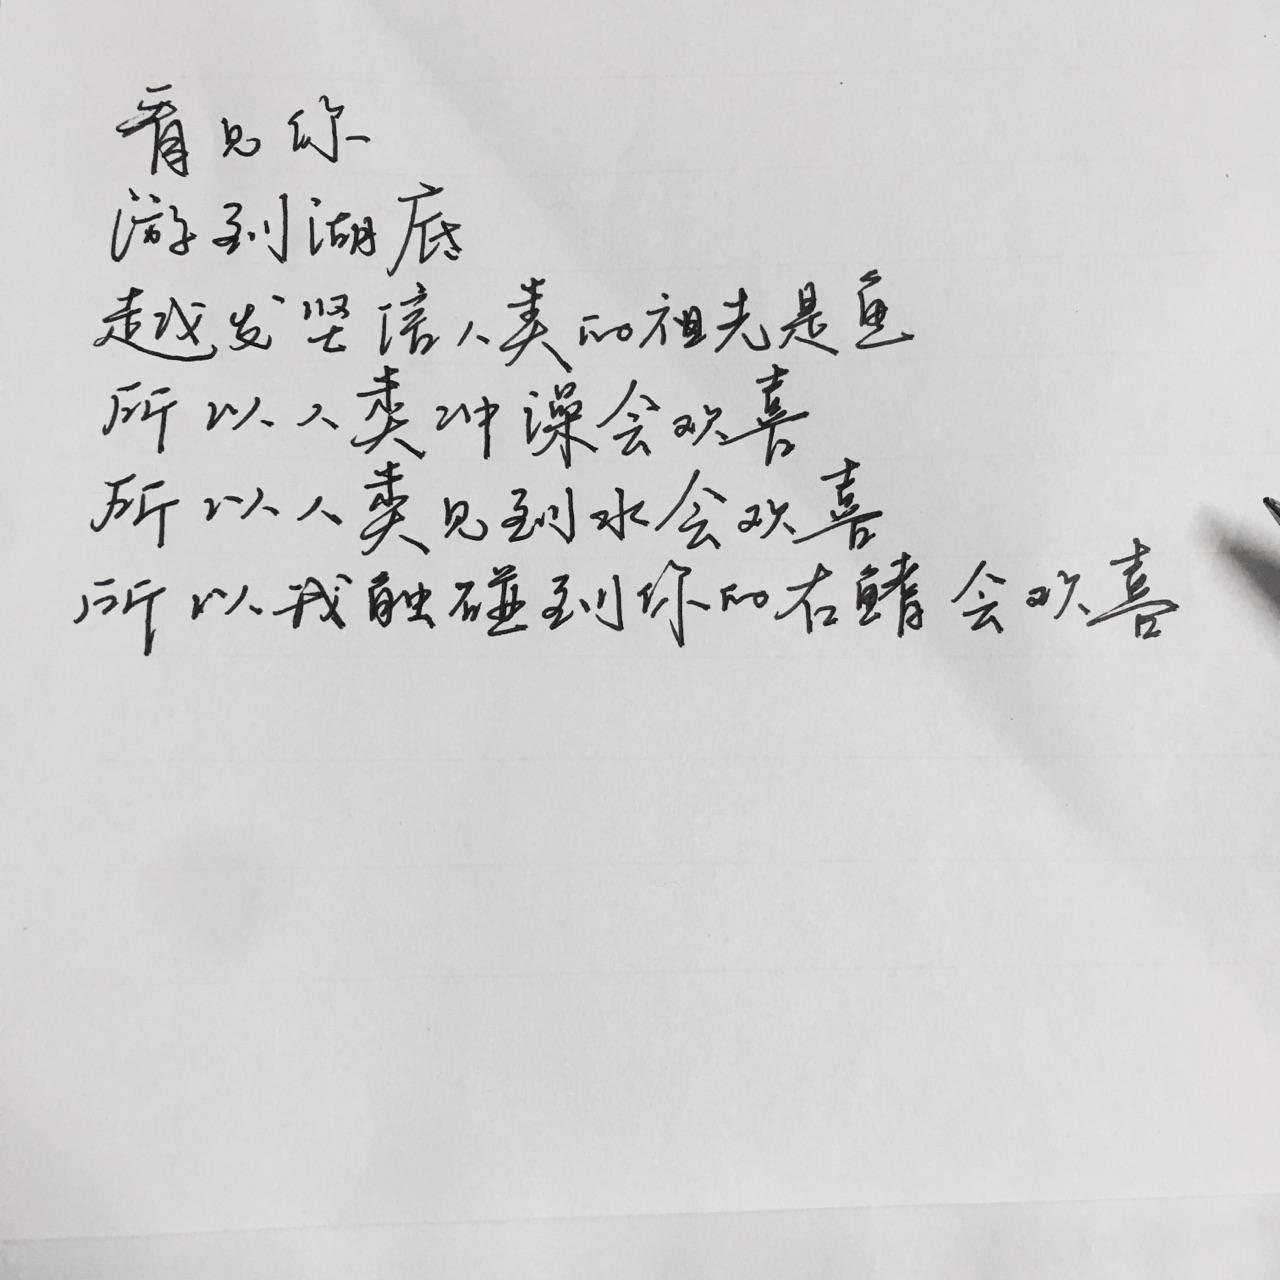 看见你
游到湖底
越发坚信人类的祖先是鱼
所以人类冲澡会欢喜
所以人类见到水会欢喜
所以我触碰到你的右鳍会欢喜